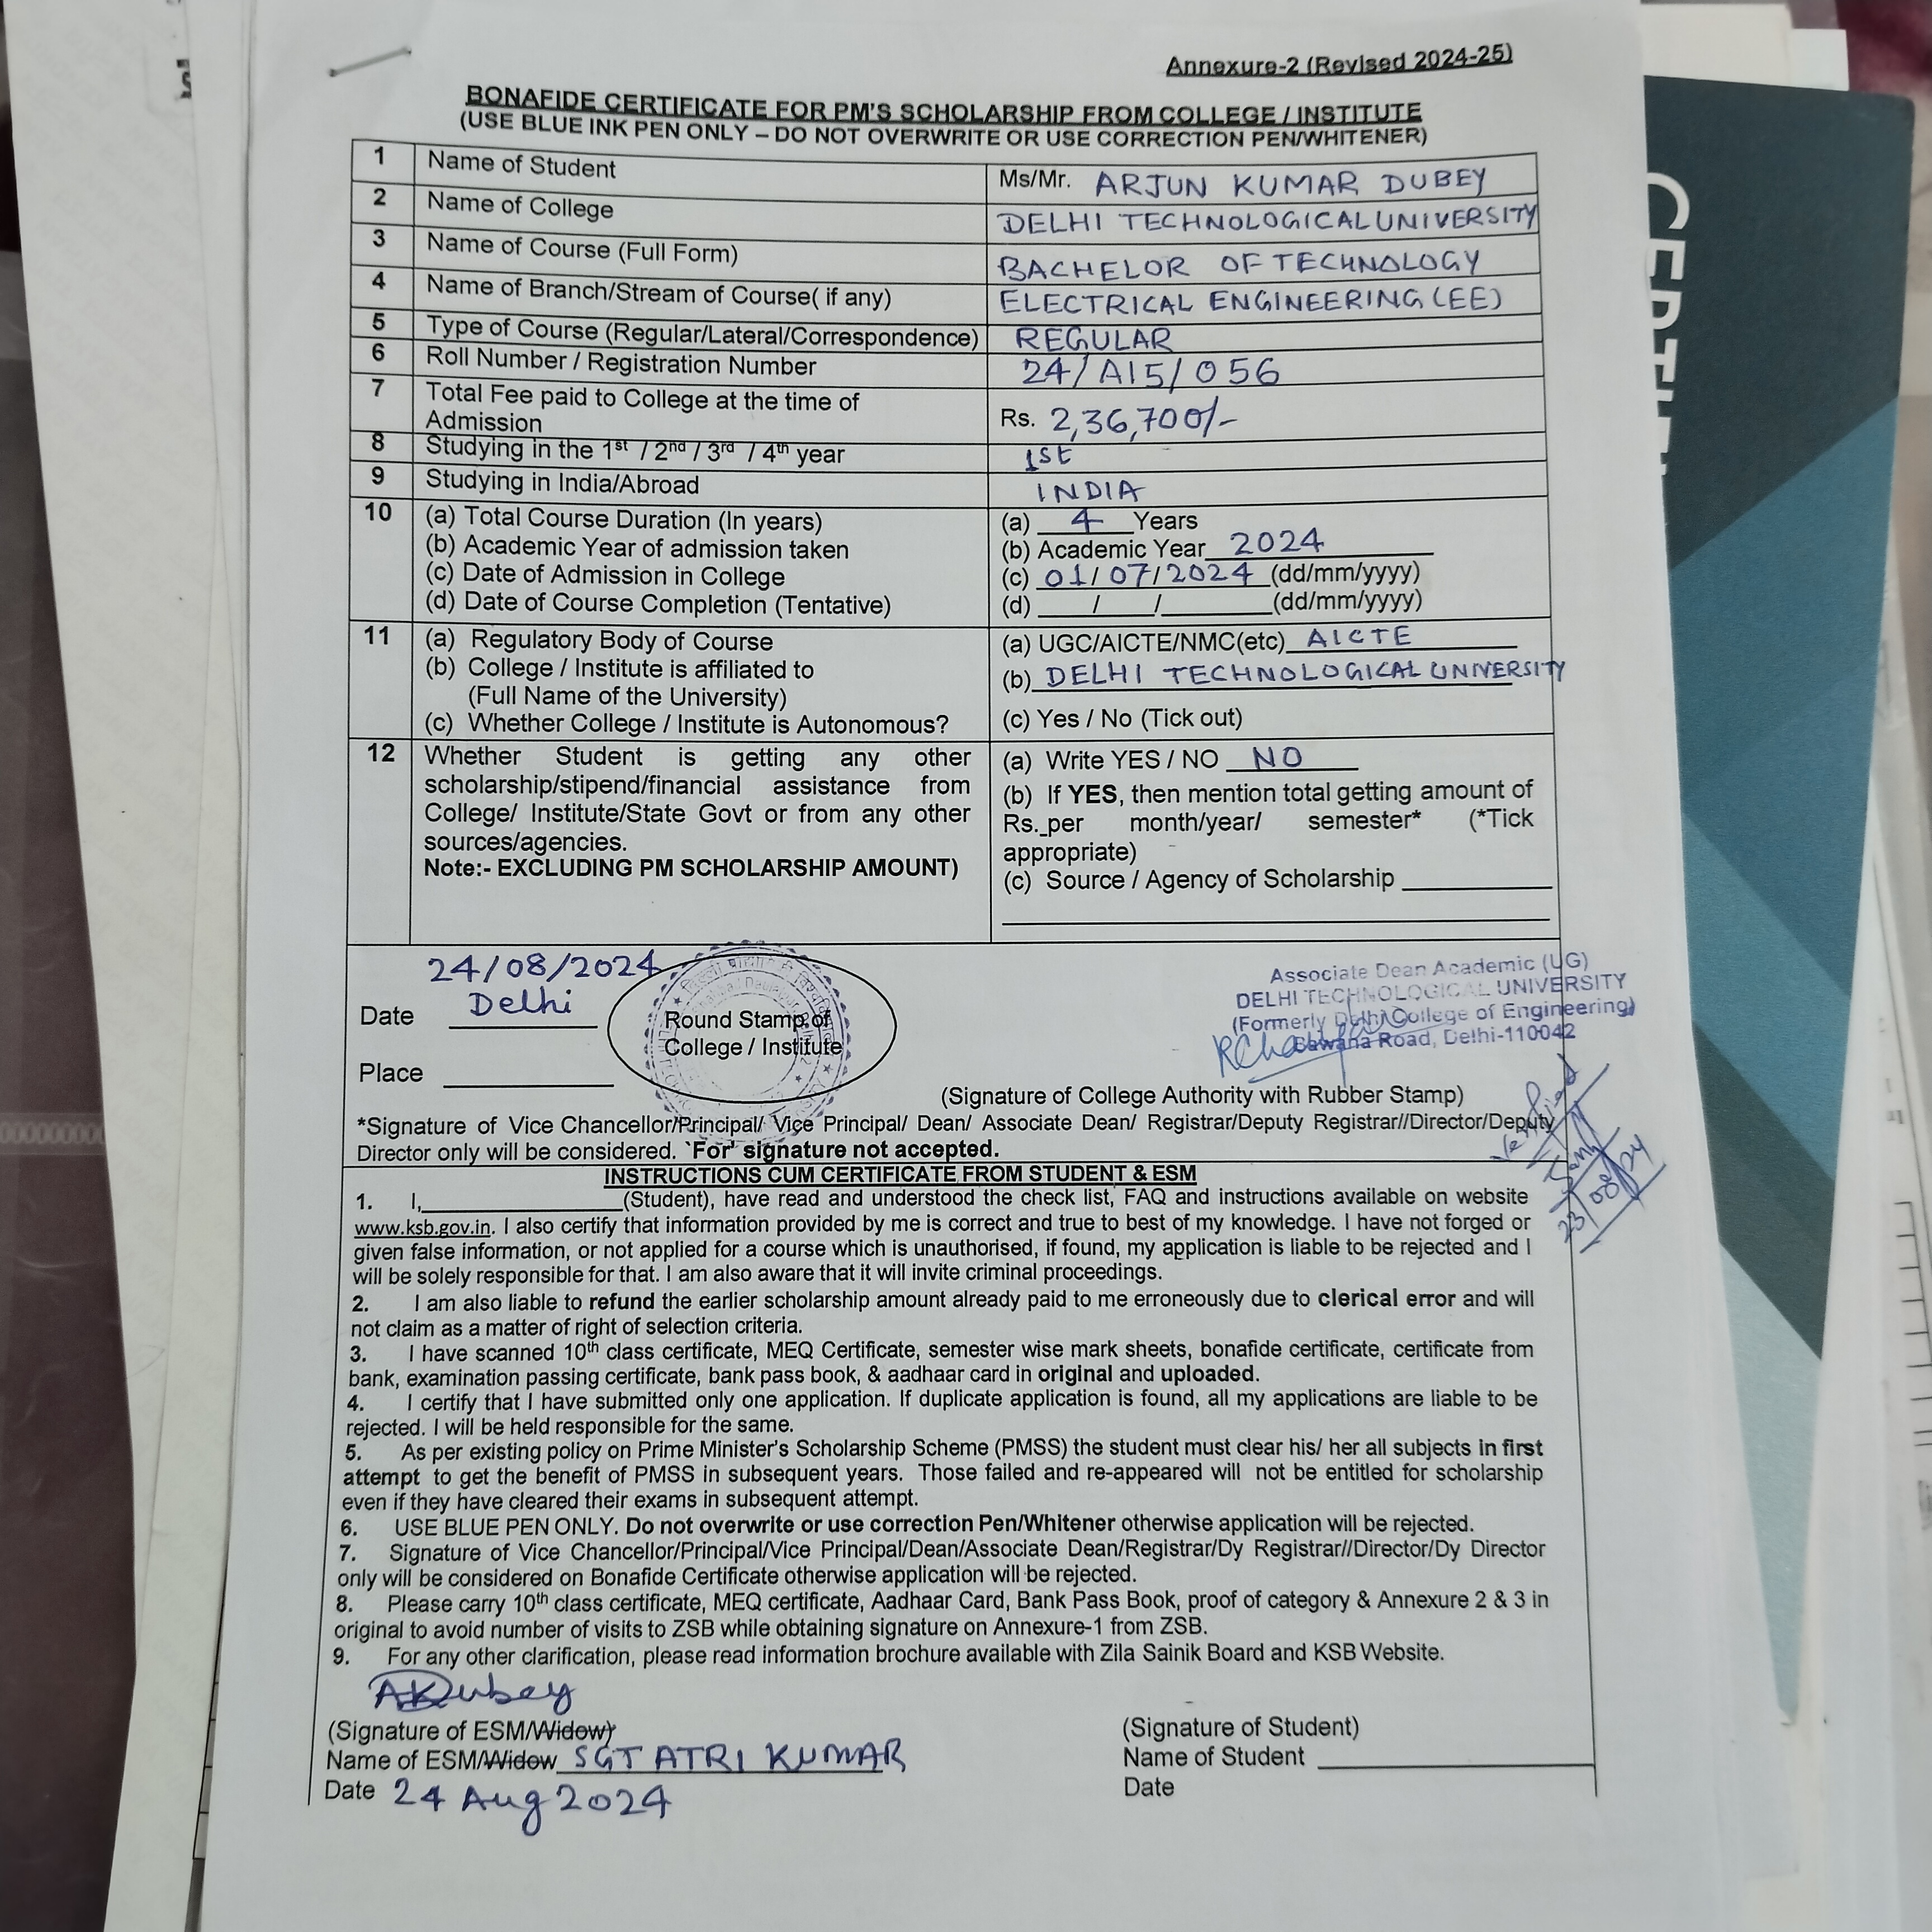 Annexure-2 (Revised 2024-25)
BONAFIDE CERTIFICATE FOR PM'S SCHOLARSHIP FROM COLLEGE / INSTITUTE
(USE BLUE INK PEN ONLY – DO NOT OVERWRITE OR USE CORRECTION PEN/WHITENER)
1 Name of Student Ms/Mr. ARJUN KUMAR DUBEY
2 Name of College DELHI TECHNOLOGICAL UNIVERSITY
3 Name of Course (Full Form) BACHELOR OF TECHNOLOGY
4 Name of Branch/Stream of Course( if any) ELECTRICAL ENGINEERING (EE)
5 Type of Course (Regular/Lateral/Correspondence) REGULAR
6 Roll Number / Registration Number 24/A15/056
7 Total Fee paid to College at the time of
Admission Rs. 2,36,700/-
8 Studying in the 1st / 2nd / 3rd / 4th year 1st
9 Studying in India/Abroad INDIA
10 (a) Total Course Duration (In years) (a) 4 Years
(b) Academic Year of admission taken (b) Academic Year 2024
(c) Date of Admission in College (c) 01/07/2024 (dd/mm/yyyy)
(d) Date of Course Completion (Tentative) (d) ____/____/________(dd/mm/yyyy)
11 (a) Regulatory Body of Course (a) UGC/AICTE/NMC(etc) AICTE
(b) College / Institute is affiliated to (b) DELHI TECHNOLOGICAL UNIVERSITY
(Full Name of the University)
(c) Whether College / Institute is Autonomous? (c) Yes / No (Tick out)
12 Whether Student is getting any other
scholarship/stipend/financial assistance from
College/ Institute/State Govt or from any other
sources/agencies.
Note:- EXCLUDING PM SCHOLARSHIP AMOUNT)
(a) Write YES / NO NO
(b) If YES, then mention total getting amount of
Rs._per month/year/ semester* (*Tick
appropriate)
(c) Source / Agency of Scholarship
24/08/2024
Date Delhi
Place
Round Stamp of
College / Institute
Associate Dean Academic (UG)
DELHI TECHNOLOGICAL UNIVERSITY
(Formerly Delhi College of Engineering)
Bawana Road, Delhi-110042
(Signature of College Authority with Rubber Stamp)
Verified
23/08/24
*Signature of Vice Chancellor/Principal/ Vice Principal/ Dean/ Associate Dean/ Registrar/Deputy Registrar//Director/Deputy
Director only will be considered. `For' signature not accepted.
INSTRUCTIONS CUM CERTIFICATE FROM STUDENT & ESM
1. I,__________________(Student), have read and understood the check list, FAQ and instructions available on website
www.ksb.gov.in. I also certify that information provided by me is correct and true to best of my knowledge. I have not forged or
given false information, or not applied for a course which is unauthorised, if found, my application is liable to be rejected and I
will be solely responsible for that. I am also aware that it will invite criminal proceedings.
2. I am also liable to refund the earlier scholarship amount already paid to me erroneously due to clerical error and will
not claim as a matter of right of selection criteria.
3. I have scanned 10th class certificate, MEQ Certificate, semester wise mark sheets, bonafide certificate, certificate from
bank, examination passing certificate, bank pass book, & aadhaar card in original and uploaded.
4. I certify that I have submitted only one application. If duplicate application is found, all my applications are liable to be
rejected. I will be held responsible for the same.
5. As per existing policy on Prime Minister's Scholarship Scheme (PMSS) the student must clear his/ her all subjects in first
attempt to get the benefit of PMSS in subsequent years. Those failed and re-appeared will not be entitled for scholarship
even if they have cleared their exams in subsequent attempt.
6. USE BLUE PEN ONLY. Do not overwrite or use correction Pen/Whitener otherwise application will be rejected.
7. Signature of Vice Chancellor/Principal/Vice Principal/Dean/Associate Dean/Registrar/Dy Registrar//Director/Dy Director
only will be considered on Bonafide Certificate otherwise application will be rejected.
8. Please carry 10th class certificate, MEQ certificate, Aadhaar Card, Bank Pass Book, proof of category & Annexure 2 & 3 in
original to avoid number of visits to ZSB while obtaining signature on Annexure-1 from ZSB.
9. For any other clarification, please read information brochure available with Zila Sainik Board and KSB Website.
AKDubey
(Signature of ESM/Widow) (Signature of Student)
Name of ESM/Widow SGT ATRI KUMAR Name of Student
Date 24 Aug 2024 Date